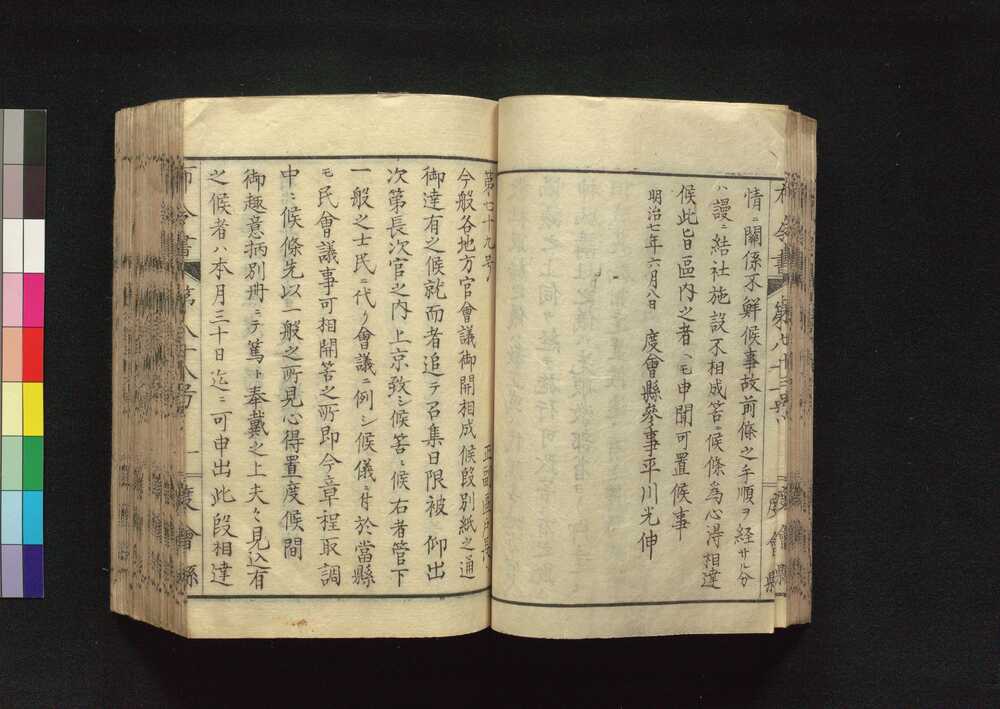 情ニ關係不鮮候事故前條之手順ヲ経サル分
ハ謾ニ結社施設不相成筈ニ候條為心得相達
候此旨區内之者ヘモ申聞可置候事
明治七年六月八日　度會縣參事平川光伸
第七十九号
今般各地方官會議御開相成候段別紙之通
御達有之候就而者追テ召集日限被　仰出
次第長次官之内上京致シ候筈ニ候右者管下
一般之士民ニ代リ會議ニ例シ候儀ニ付於當縣
モ民會議事可相開筈之所即今章程取調
中ニ候條先以一般之所見心得置度候間
御趣意柄別冊ニテ篤ト奉戴之上夫々見込有
之候者ハ本月三十日迄ニ可申出此段相達
布令書　第八十八号　一　度會縣